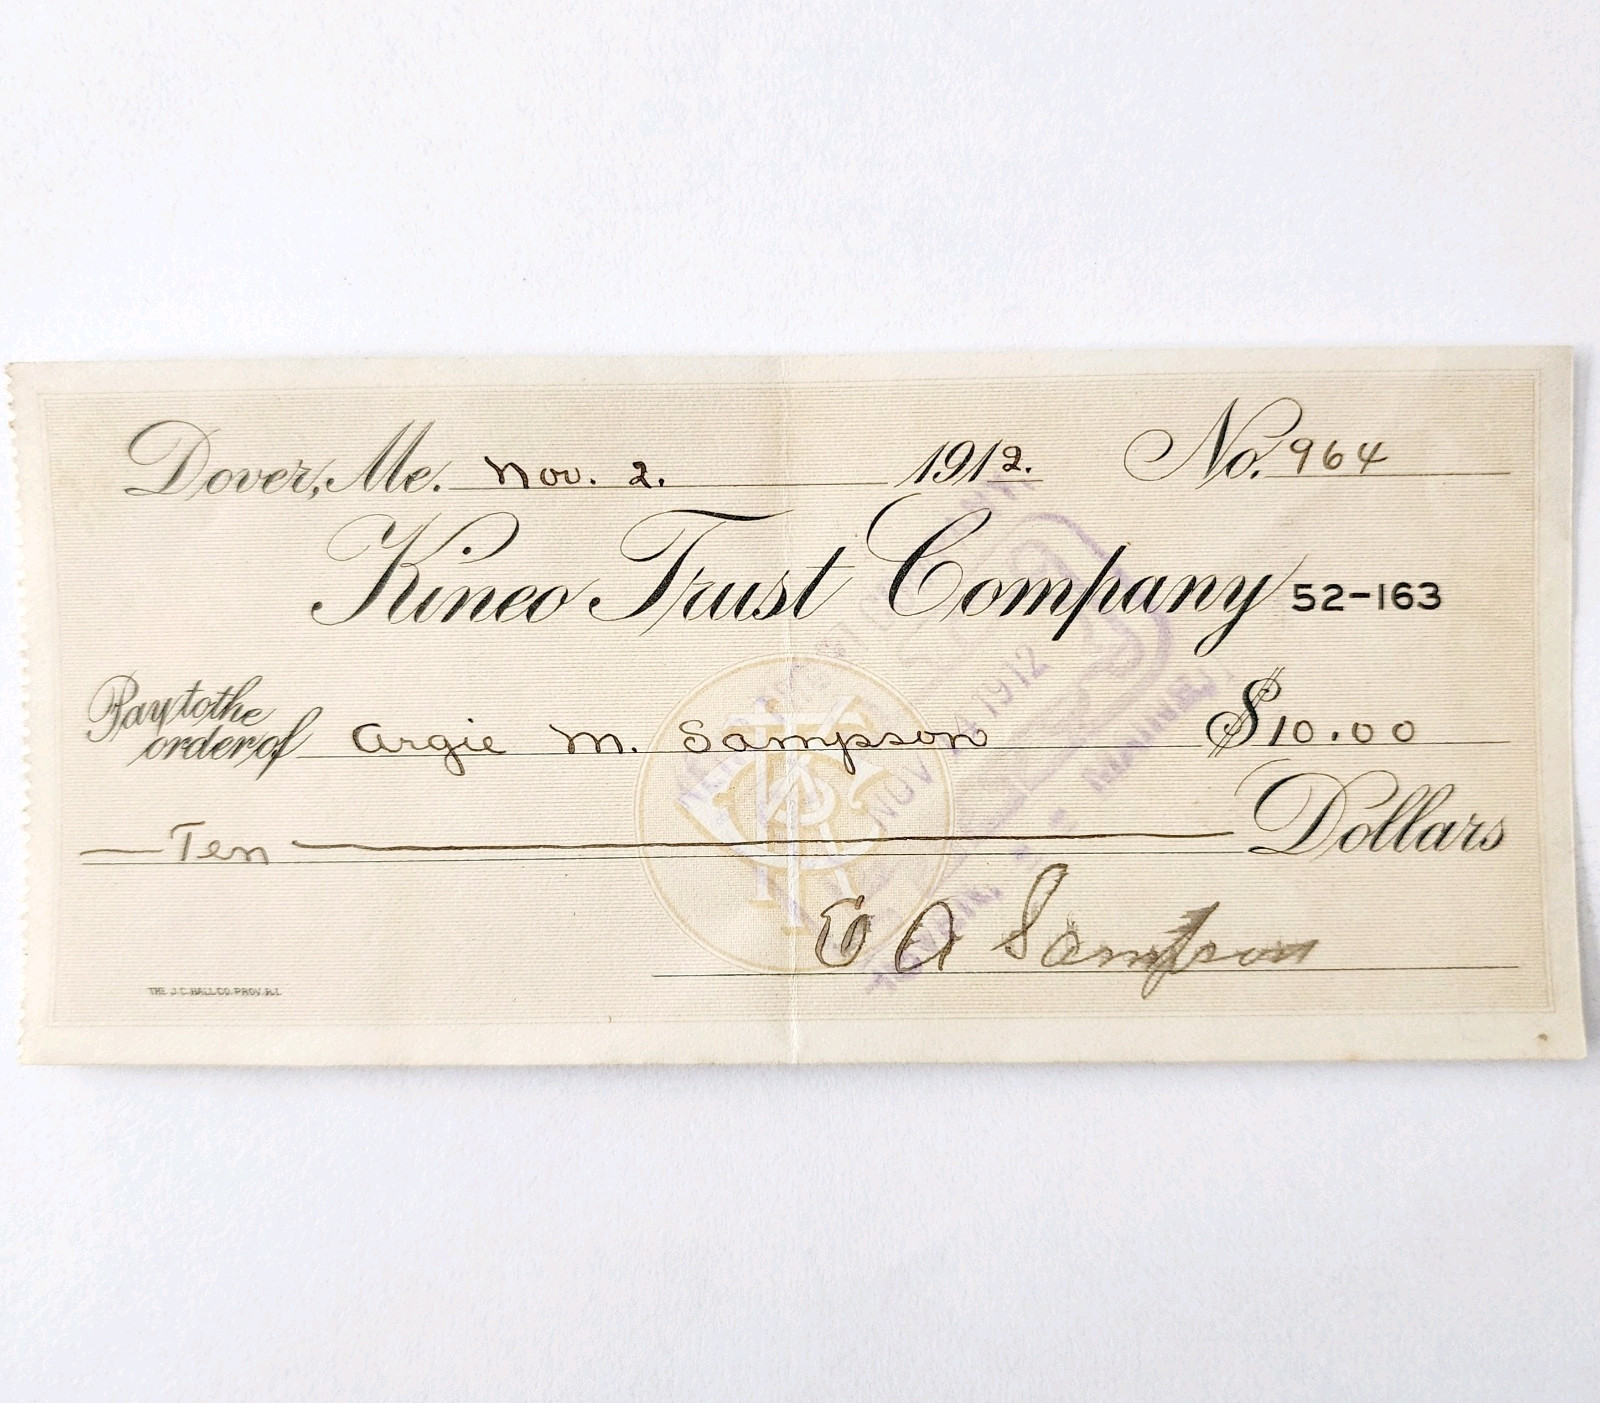 Dover, Me. Nov. 2. 1912. No. 964
Kineo Trust Company 52-163
Pay to the
order of Argie M. Sampson $10.00
Ten Dollars
E A Sampson
THE J.C. HALL CO. PROV. R.I.
PAID
NOV 1912
DOVER, MAINE